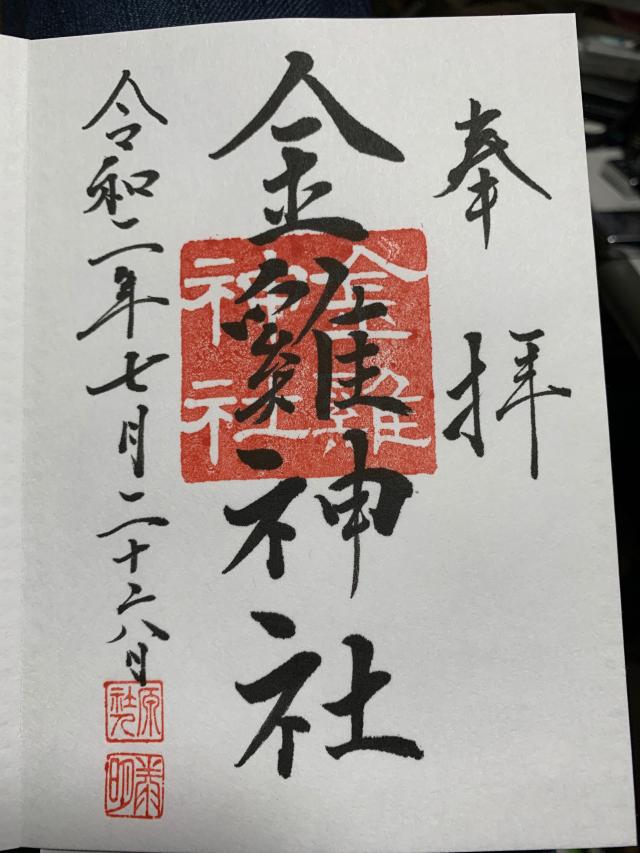 奉拝
金雞神社
金雞神社
令和二年七月二十六日